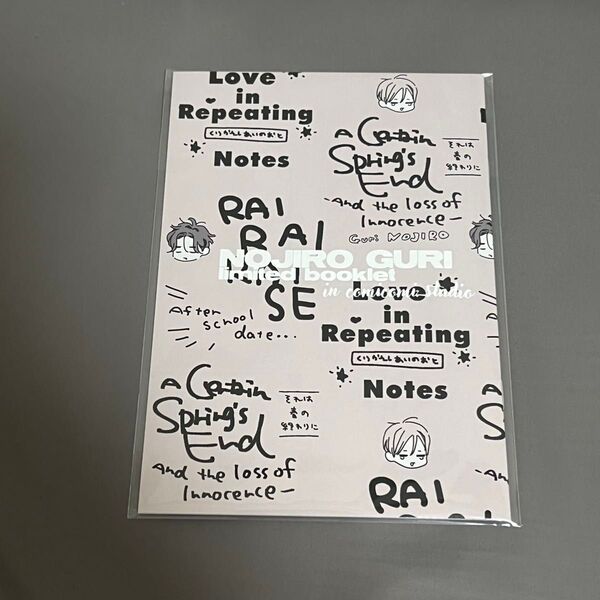 Love
in
Repeating
くりかえしあいのおと
Notes
A Certain
Spring's
End
-And the loss of
Innocence-
Guri NOJIRO
それは
春の
終わりに
RAI
RAI
RAI
SE
NOJIRO GURI
limited booklet
in comicomi studio
After
school
date...
Love
in
Repeating
くりかえしあいのおと
Notes
A Certain
Spring's
End
And the loss of
Innocence-
それは
春の
終わりに
RAI
A
S
-An
I